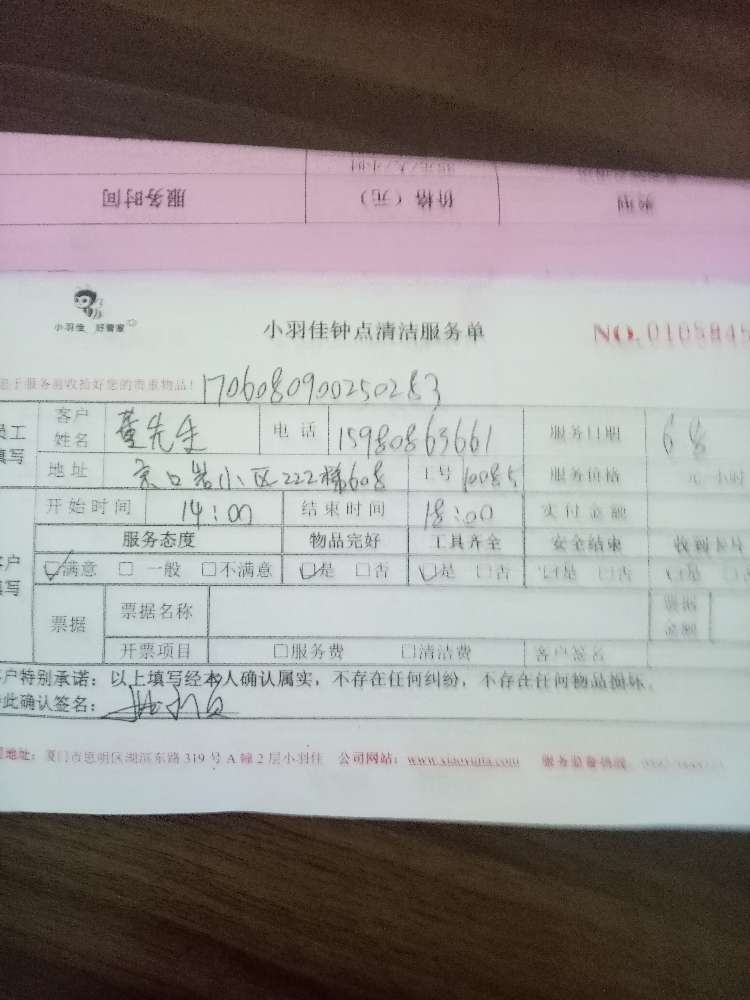 服务时间 价格（元） 类型
小羽佳 好管家
小羽佳钟点清洁服务单 NO.0105845
服务前收拾好您的贵重物品！ 1706080900250283
员工填写 客户姓名 董先生 电话 15980863661 服务日期 6.8
地址 京口岩小区222梯608 工号 10085 服务价格 元 小时
开始时间 14:00 结束时间 18:00 实付金额
服务态度 物品完好 工具齐全 安全结束 收到
客户填写 ☑满意 □一般 □不满意 ☑是 □否 ☑是 □否 ☑是 □否 ☑是 □否
票据 票据名称 票据金额
开票项目 □服务费 □清洁费 客户签名
客户特别承诺：以上填写经本人确认属实，不存在任何纠纷，不存在任何物品损坏。
此确认签名：
地址：厦门市思明区湖滨东路 319 号 A 幢 2 层小羽佳 公司网站：www.xiaoyujia.com 服务监督热线